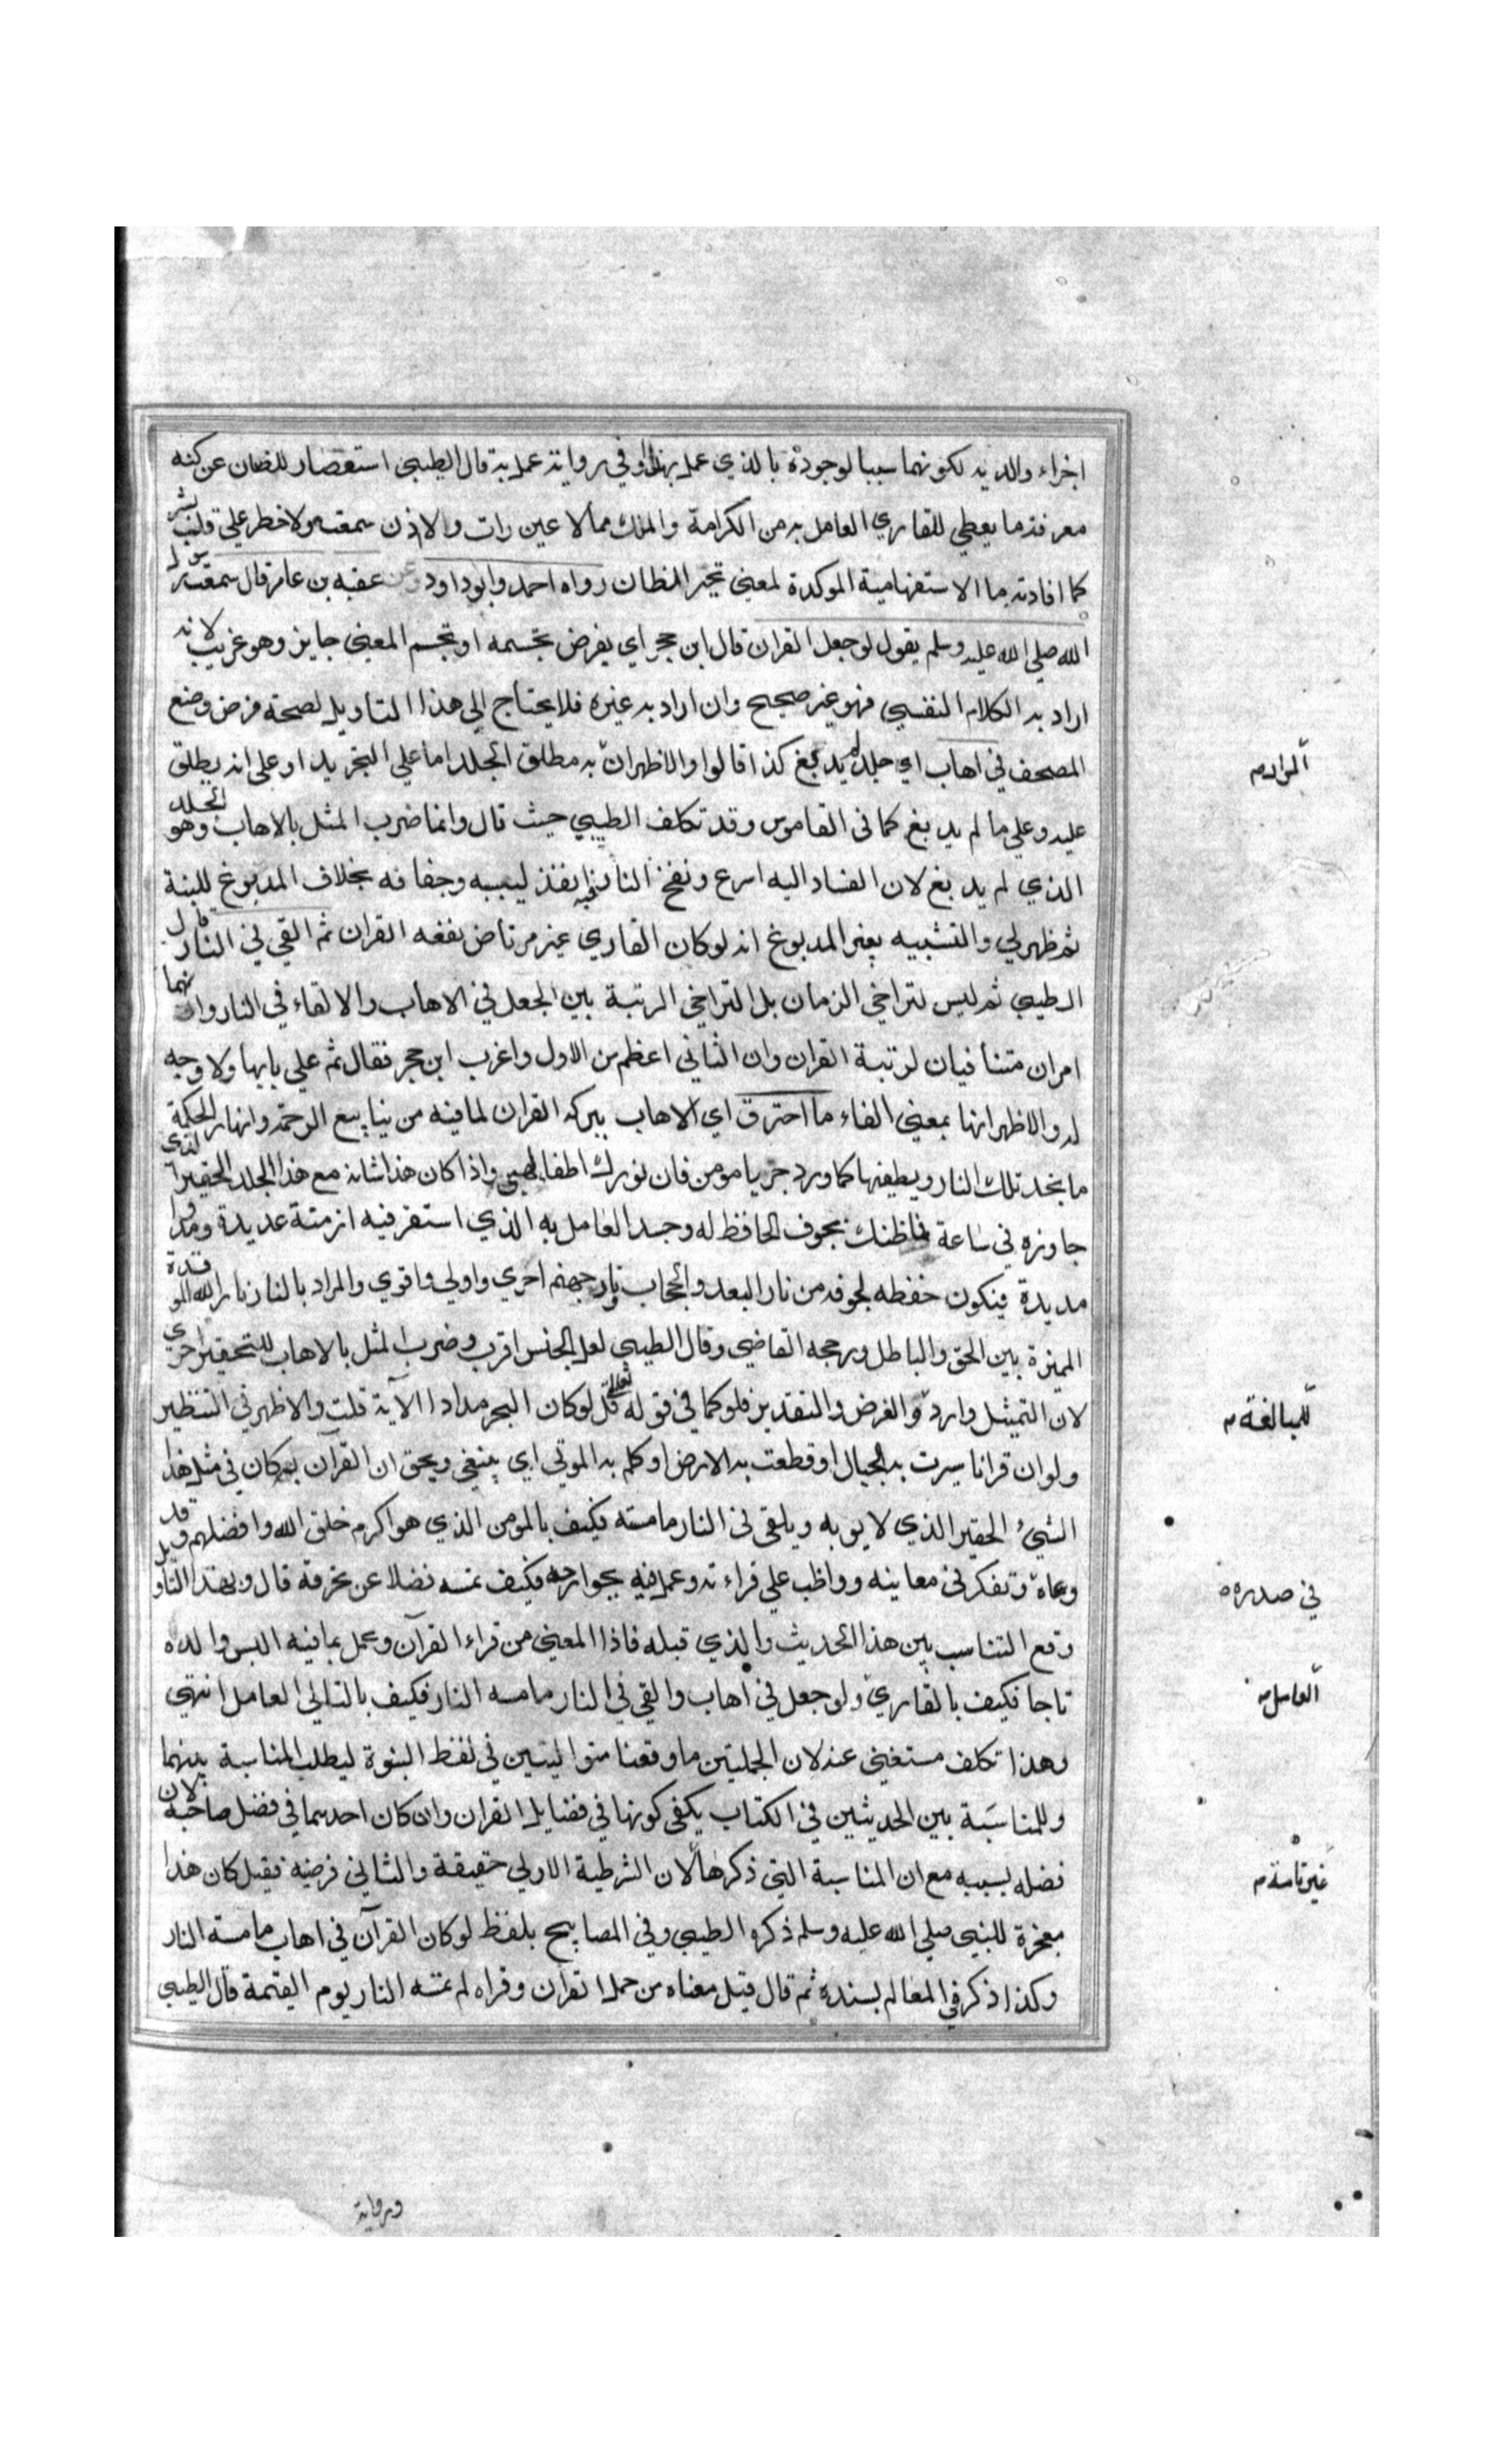 اجزاء والديه لكونهما سببا لوجوده بالذي عمل بهذا وفي رواية عمل به قال الطيبي استقصار للظان عن كنه
معرفة ما يعطي للقاري العامل به من الكرامة والملك مما لا عين رات ولا اذن سمعت ولا خطر علي قلب بشر
كما افادته ما الاستفهامية الموكدة لمعني تحير الظان رواه احمد وابوداود وعن عقبه بن عامر قال سمعت رسول
الله صلي الله عليه وسلم يقول لو جعل القران قال ابن حجر اي يفرض تجسمه او تجسم المعني جايز وهو غريب لانه
اراد به الكلام النفسي فهو غير صحيح وان اراد به غيره فلا يحتاج الي هذا التاويل لصحة فرض وضع
المصحف في اهاب اي جلد لم يدبغ كذا قالوا والاظهر ان به مطلق الجلد اما علي التجريد او علي انه يطلق
المراد
عليه وعلي ما لم يدبغ كما في القاموس وقد تكلف الطيبي حيث قال وانما ضرب المثل بالاهاب وهو الجلد
الذي لم يدبغ لان الفساد اليه اسرع ونفخ النار فيه انفذ ليبسه وجفافه بخلاف المدبوغ للينة
ثم ظهر لي والتشبيه بغير المدبوغ انه لو كان القاري غير مرتاض نفعه القران ثم القي في النار قال
الطيبي ثم ليس لتراخي الزمان بل التراخي الرتبة بين الجعل في الاهاب والالقاء في النار وانهما
امران متنافيان لرتبة القران وان الثاني اعظم من الاول واغرب ابن حجر فقال ثم علي بابها ولا وجه
له والاظهر انها بمعني الفاء ما احترق اي الاهاب ببركه القران لما فيه من ينابيع الرحمة وانهار الحكمة
ما يخمد تلك النار ويطفيها كما ورد جز يا مومن فان نورك اطفا لهبي واذا كان هذا شانه مع هذا الجلد الحقير الذي
جاوزه في ساعة فما ظنك بجوف الحافظ له وجسد العامل به الذي استقر فيه ازمنة عديدة ومددا
مديدة فيكون حفظه لجوفه من نار البعد والحجاب ونار جهنم احري واولي واقوي والمراد بالنار نار الله الموقدة
المميزة بين الحق والباطل ورجحه القاضي وقال الطيبي لعل الجنس اقرب وضرب المثل بالاهاب للتحقير احري
لان التمثيل وارد والفرض والتقدير فلو كما في قوله تعالي قل لو كان البحر مدادا الآية قلت والاظهر في التنظير
للمبالغة
ولو ان قرانا سيرت به الجبال او قطعت به الارض او كلم به الموتي اي ينبغي ويحق ان القرآن لو كان في مثل هذا
الشيء الحقير الذي لا يوبه ويلقي في النار ما مسته فكيف بالمومن الذي هو اكرم خلق الله وافضلهم وقد
وعاه وتفكر في معانيه وواظب علي قراءته وعمل فيه بجوارحه فكيف تمسه فضلا عن تحرقه قال وبهذا التاويل
في صدره
وقع التناسب بين هذا الحديث والذي قبله فاذا المعني من قراء القرآن وعمل بما فيه البس والده
تاجا فكيف بالقاري ولو جعل في اهاب والقي في النار ما مسه النار فكيف بالتالي العامل انتهي
العامل
وهذا تكلف مستغني عنه لان الجملتين ما وقعتا متواليتين في لفظ النبوة ليطلب المناسبة بينهما
وللمناسبة بين الحديثين في الكتاب يكفي كونها في فضايل القران وان كان احدهما في فضل صاحبه لان
فضله بسببه مع ان المناسبة التي ذكرها لان الشرطية الاولي حقيقة والثاني فرضيه فقيل كان هذا
غير تامة
معجزة للنبي صلي الله عليه وسلم ذكره الطيبي وفي المصابيح بلفظ لو كان القرآن في اهاب ما مسته النار
وكذا ذكر في المعالم بسنده ثم قال قيل معناه من حمل القران وقراه لم تمسه النار يوم القيمة قال الطيبي
ورواية